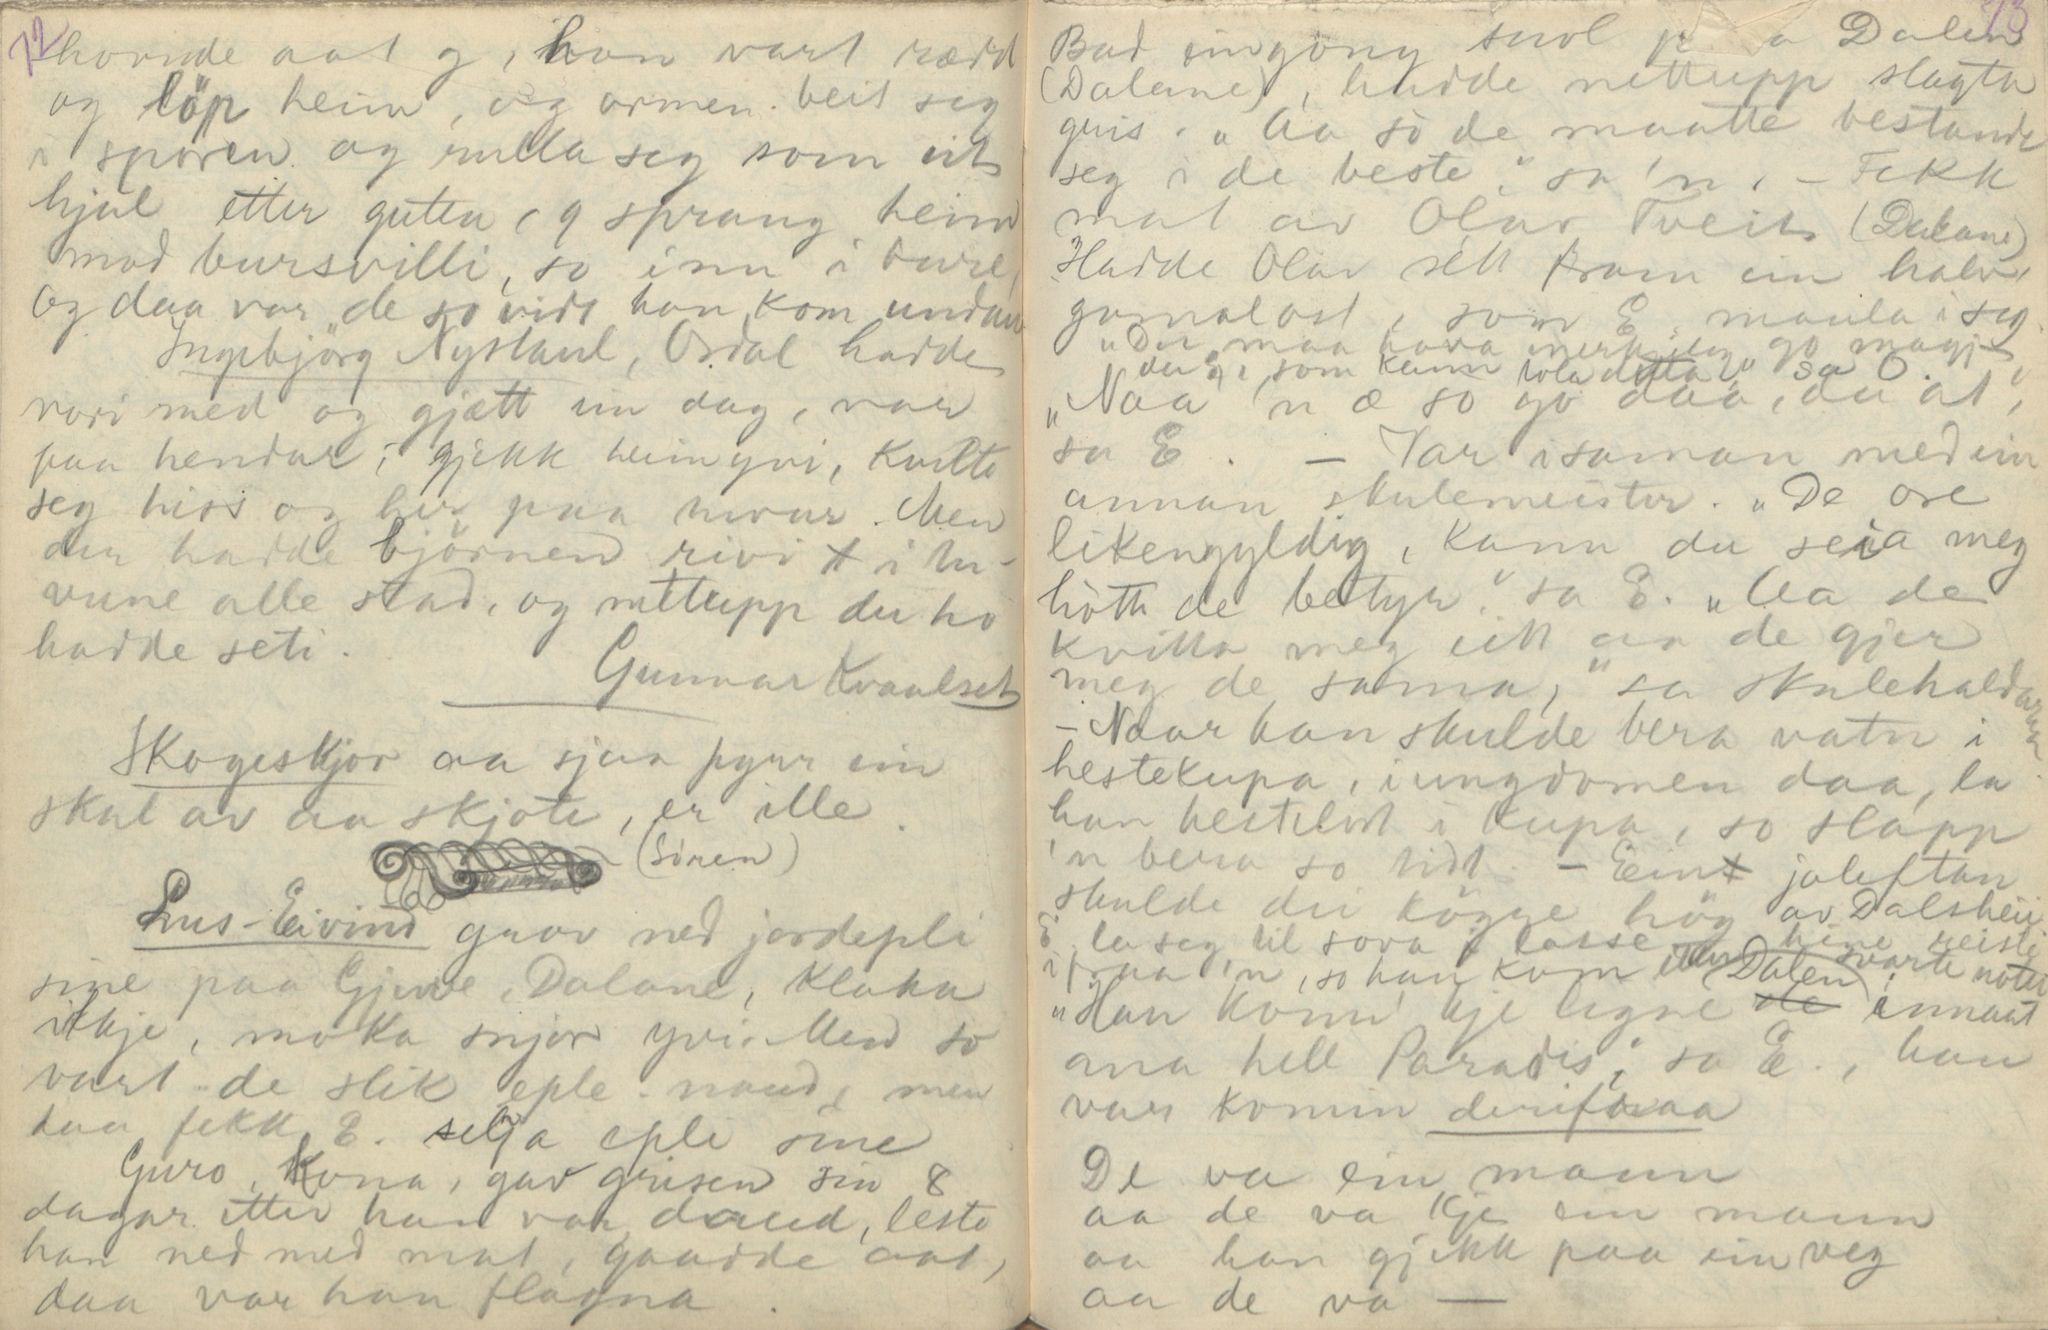 72
hovude aat g, han vart rædd
og löp heim, og ormen beit seg
i sporen og rulla seg som eit
hjul etter guten, g sprang heim
mod bursvilli, so inn i bure,
og daa var de so vidt han kom undan
Ingebjörg Nystaul, Osdal hadde
vori med og gjætt ein dag, var
paa hendar, gjekk heimyvi, kvilte
seg hiss og her paa tuvur. Men
der hadde björnen rivi i tu-
vune alle stad, og nettupp der ho
hadde seti.
Gunnar Kvaalset
Skogeskjor aa sjaa fyrr ein
skal av aa skjote, er ille.
(Sören)
Lus-Eivind grov ned jordepli
sine paa Gjuve, Dalane, klaka
ikkje, moka snjor yvi. Men so
vart de slik eple-naud, men
daa fekk E. selja epli sine
Guro, kona, gav grisen sin 8
dagar etter han var daud, leste
han ned med mat, gaadde aat,
daa var han flogna.
73
Bad eingong suvl p a Dalen
(Dalane), hadde nettupp slagta
gris. "Aa so de maatte bestande
seg i de beste," sa 'n, - Fekk
mat av Olav Tveit (Dalane)
Hadde Olav sett fram ein halv
gamalost, som E. maula i seg.
"Du maa hava merkeleg go magje
du, som kunn tola detta" sa O.
"Naa 'n æ so go daa, du at",
sa E. - Var isaman med ein
annan skulemeister. "De ore
likengyldig, kann du seia meg
hòtt de betyr." sa E. "Aa de
kvitta meg eitt aa de gjer
meg de sama," sa skulehaldaren
- Naar han skulde bera vatn i
hestekupa, i ungdomen daa, la
han hestelort i kupa, so slapp
'n bera so tidt - Ein joleftan
skulde dei köyre höy av Dalsheii
E. la seg til sova i lasse, hine reiste
ifraa 'n, so han kom etter (Dalen) svarte notti
"Han konn' kje ligne innaat
ana hell Paradis," sa E., han
var komin derifraa
De va ein mann
aa de va kje ein mann
aa han gjekk paa ein veg
aa de va —